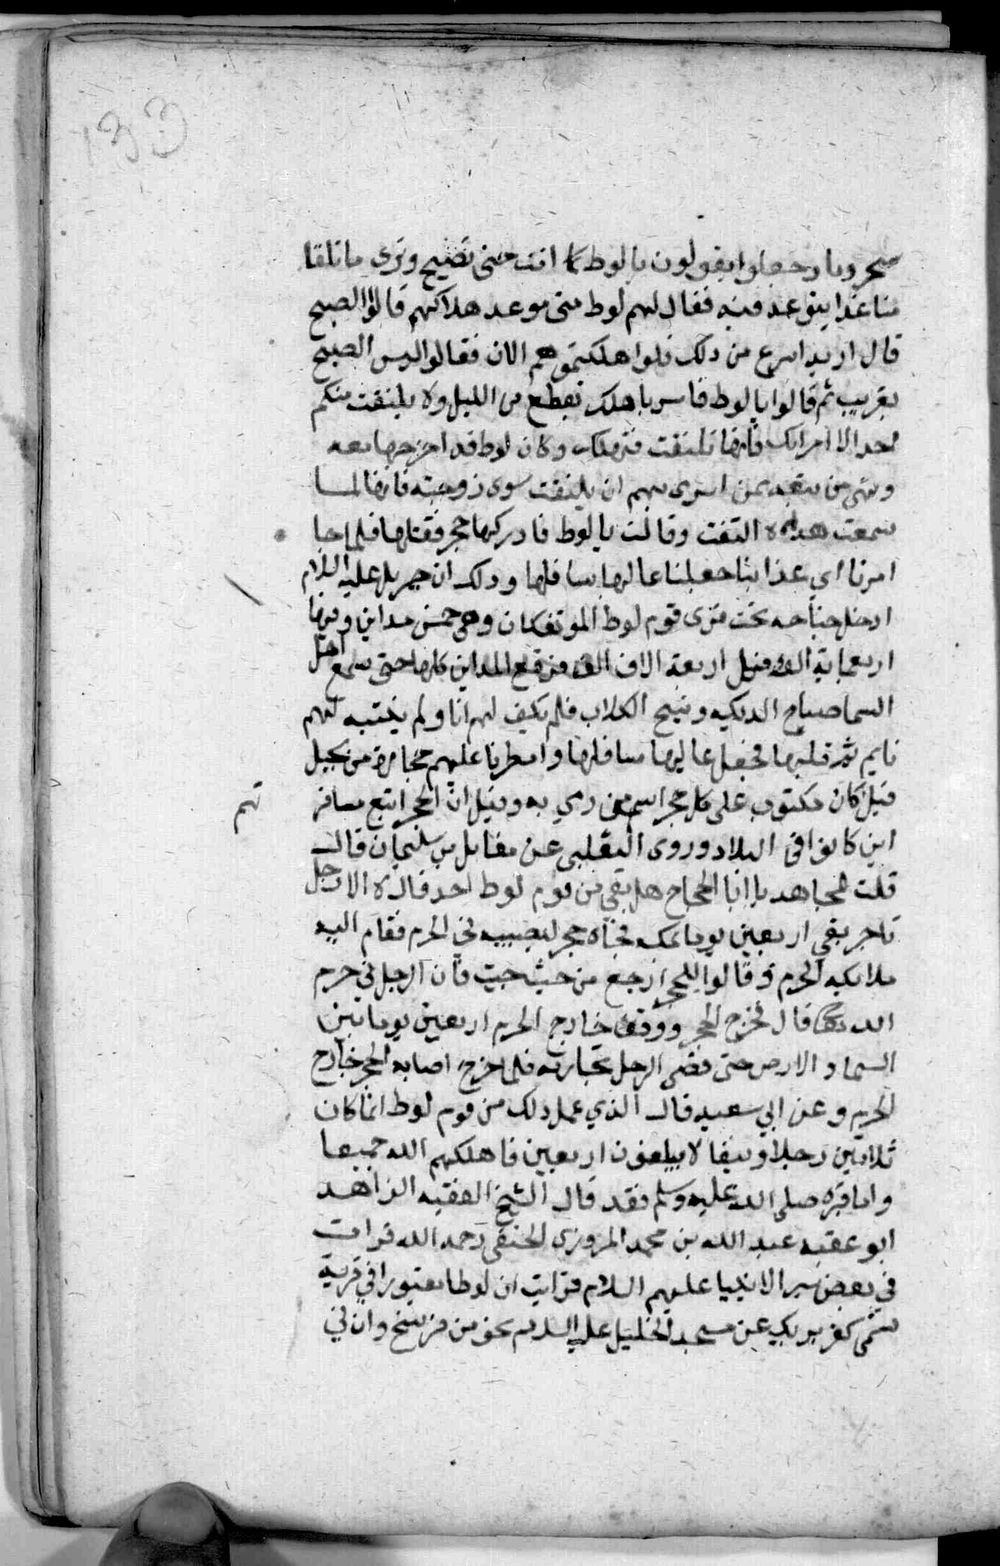 133
سحرونا وجعلوا يقولون يا لوط كما انت حتى تصبح وترى ما تلقا
منا غدا يتوعدونه فقال لهم لوط متى موعد هلاكهم قالوا الصبح
قال اريد اسرع من ذلك فلوا هلكتموهم الان فقالوا اليس الصبح
بقريب ثم قالوا يا لوط فاسر باهلك بقطع من الليل ولا يلتفت منكم
احد الا امراتك فانها تلتفت فتهلك وكان لوط قد اخرجها معه
ونهى من تبعه ممن اسرى بهم ان يلتفت سوى زوجته فانها لما
سمعت هده التفت وقالت يا لوط فادركها حجر فقتلها فلما جا
امرنا اي عذابنا جعلنا عاليها سافلها وذلك ان جبريل عليه السلام
ادخل جناحه تحت قرى قوم لوط الموتفكات وهي خمس مداين وفيها
اربعماية الف وقيل اربعة الاف الف فرفع المداين كلها حتى سمع اهل
السما صياح الديكه ونبيح الكلاب فلم يكف لهم انا ولم ينتبه لهم
نايم ثم قلبها فجعل عاليها سافلها وامطرنا عليهم حجارة من سجيل
قيل كان مكتوب على كل حجر اسم من رمي به وقيل ان الحجر اتبع مسافر
تهم
اين كانوا في البلاد وروى الثعلبي عن مقاتل بن سليمان قال
قلت لمجاهد يا ابا الحجاج هل بقي من قوم لوط احد قال لا الا رجل
تاجر بقي اربعين يوما بمكه فجاه حجر ليصيبه في الحرم فقام اليه
ملايكه الحرم وقالوا للحجر ارجع من حيث جيت فان الرجل في حرم
الله قال فخرج الحجر ووقف خارج الحرم اربعين يوما بين
السما والارض حتى قضى الرجل تجارته فلما خرج اصابه الحجر خارج
الحرم وعن ابي سعيد قال الذي عمل ذلك من قوم لوط انما كان
ثلاثين رجلا ونيفا لا يبلغون اربعين فاهلكهم الله جميعا
واما قبره صلى الله عليه وسلم فقد قال الشيخ الفقيه الزاهد
ابو عقبه عبد الله بن محمد المروزي الحنفي رحمه الله قرات
في بعض سير الانبيا عليهم السلام قرات ان لوطا مقبورا في قرية
تسمى كفر بريك عن مسجد الخليل عليه السلام نحو من فرسخ وان في